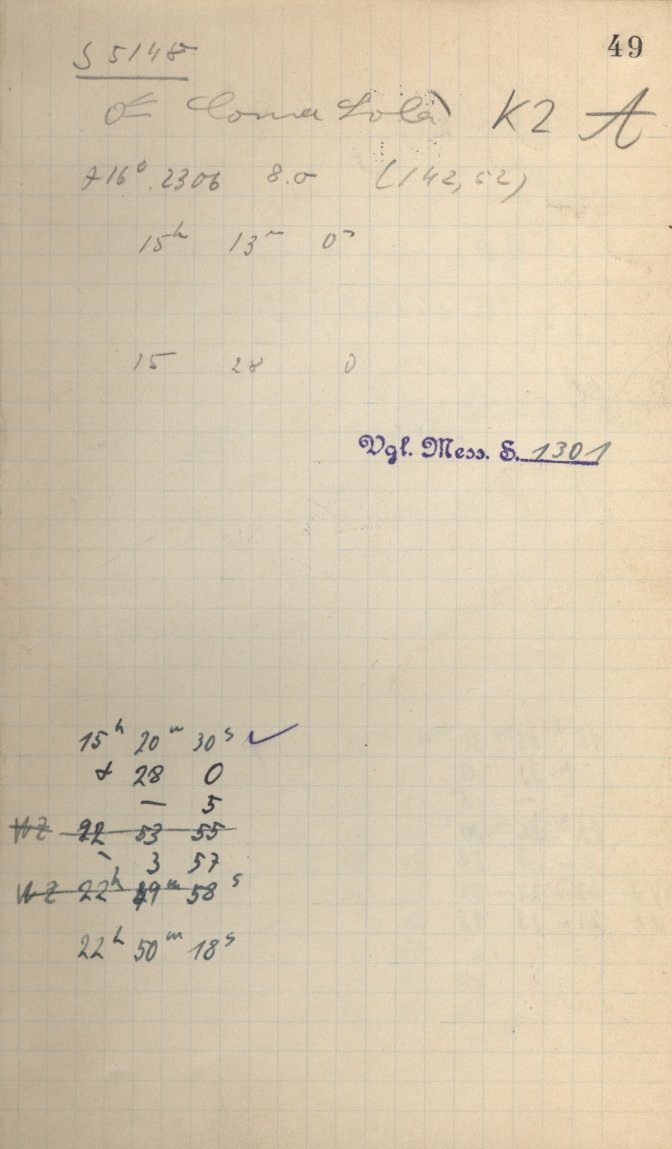 49
S 5148
Coma K2 A
+16° 2306 8.0 (142, 52)
15h 13m 0s
15 28 0
Vgl. Mess. S. 1301
15h 20m 30s ✓
+ 28 0
— 5
WZ 22 53 55
- 3 57
WZ 22h 49m 58s
22h 50m 18s